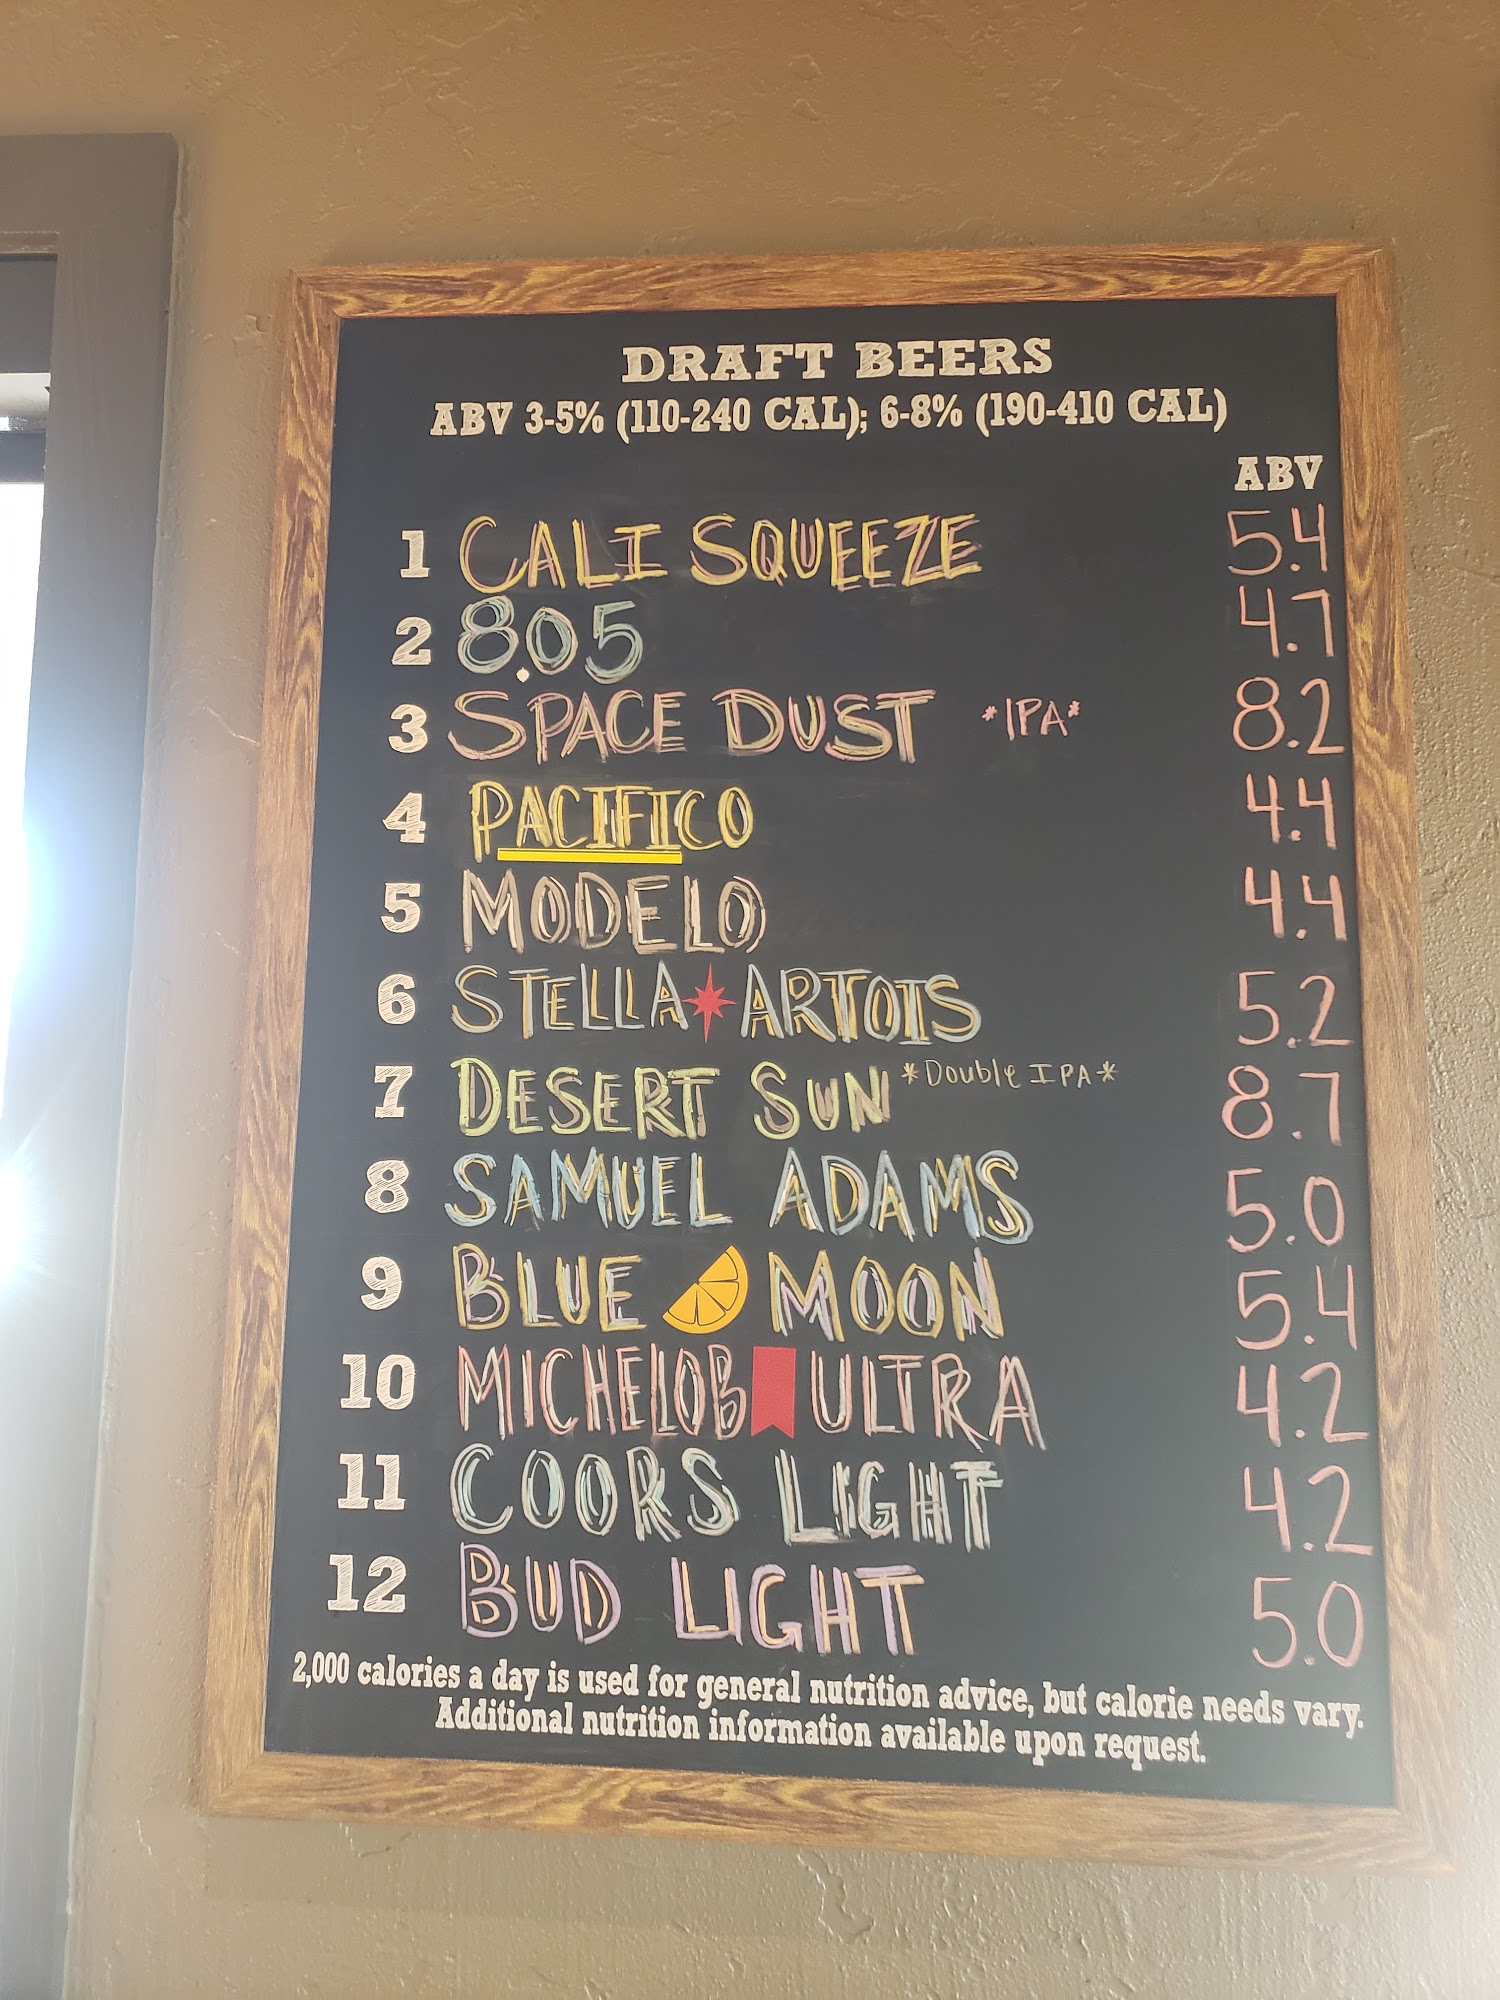 DRAFT BEERS
ABV 3-5% (110-240 CAL); 6-8% (190-410 CAL)
ABV
1 CALI SQUEEZE 5.4
2 8.05 4.7
3 SPACE DUST *IPA* 8.2
4 PACIFICO 4.4
5 MODELO 4.4
6 STELLA ARTOIS 5.2
7 DESERT SUN *Double IPA* 8.7
8 SAMUEL ADAMS 5.0
9 BLUE MOON 5.4
10 MICHELOB ULTRA 4.2
11 COORS LIGHT 4.2
12 BUD LIGHT 5.0
2,000 calories a day is used for general nutrition advice, but calorie needs vary.
Additional nutrition information available upon request.